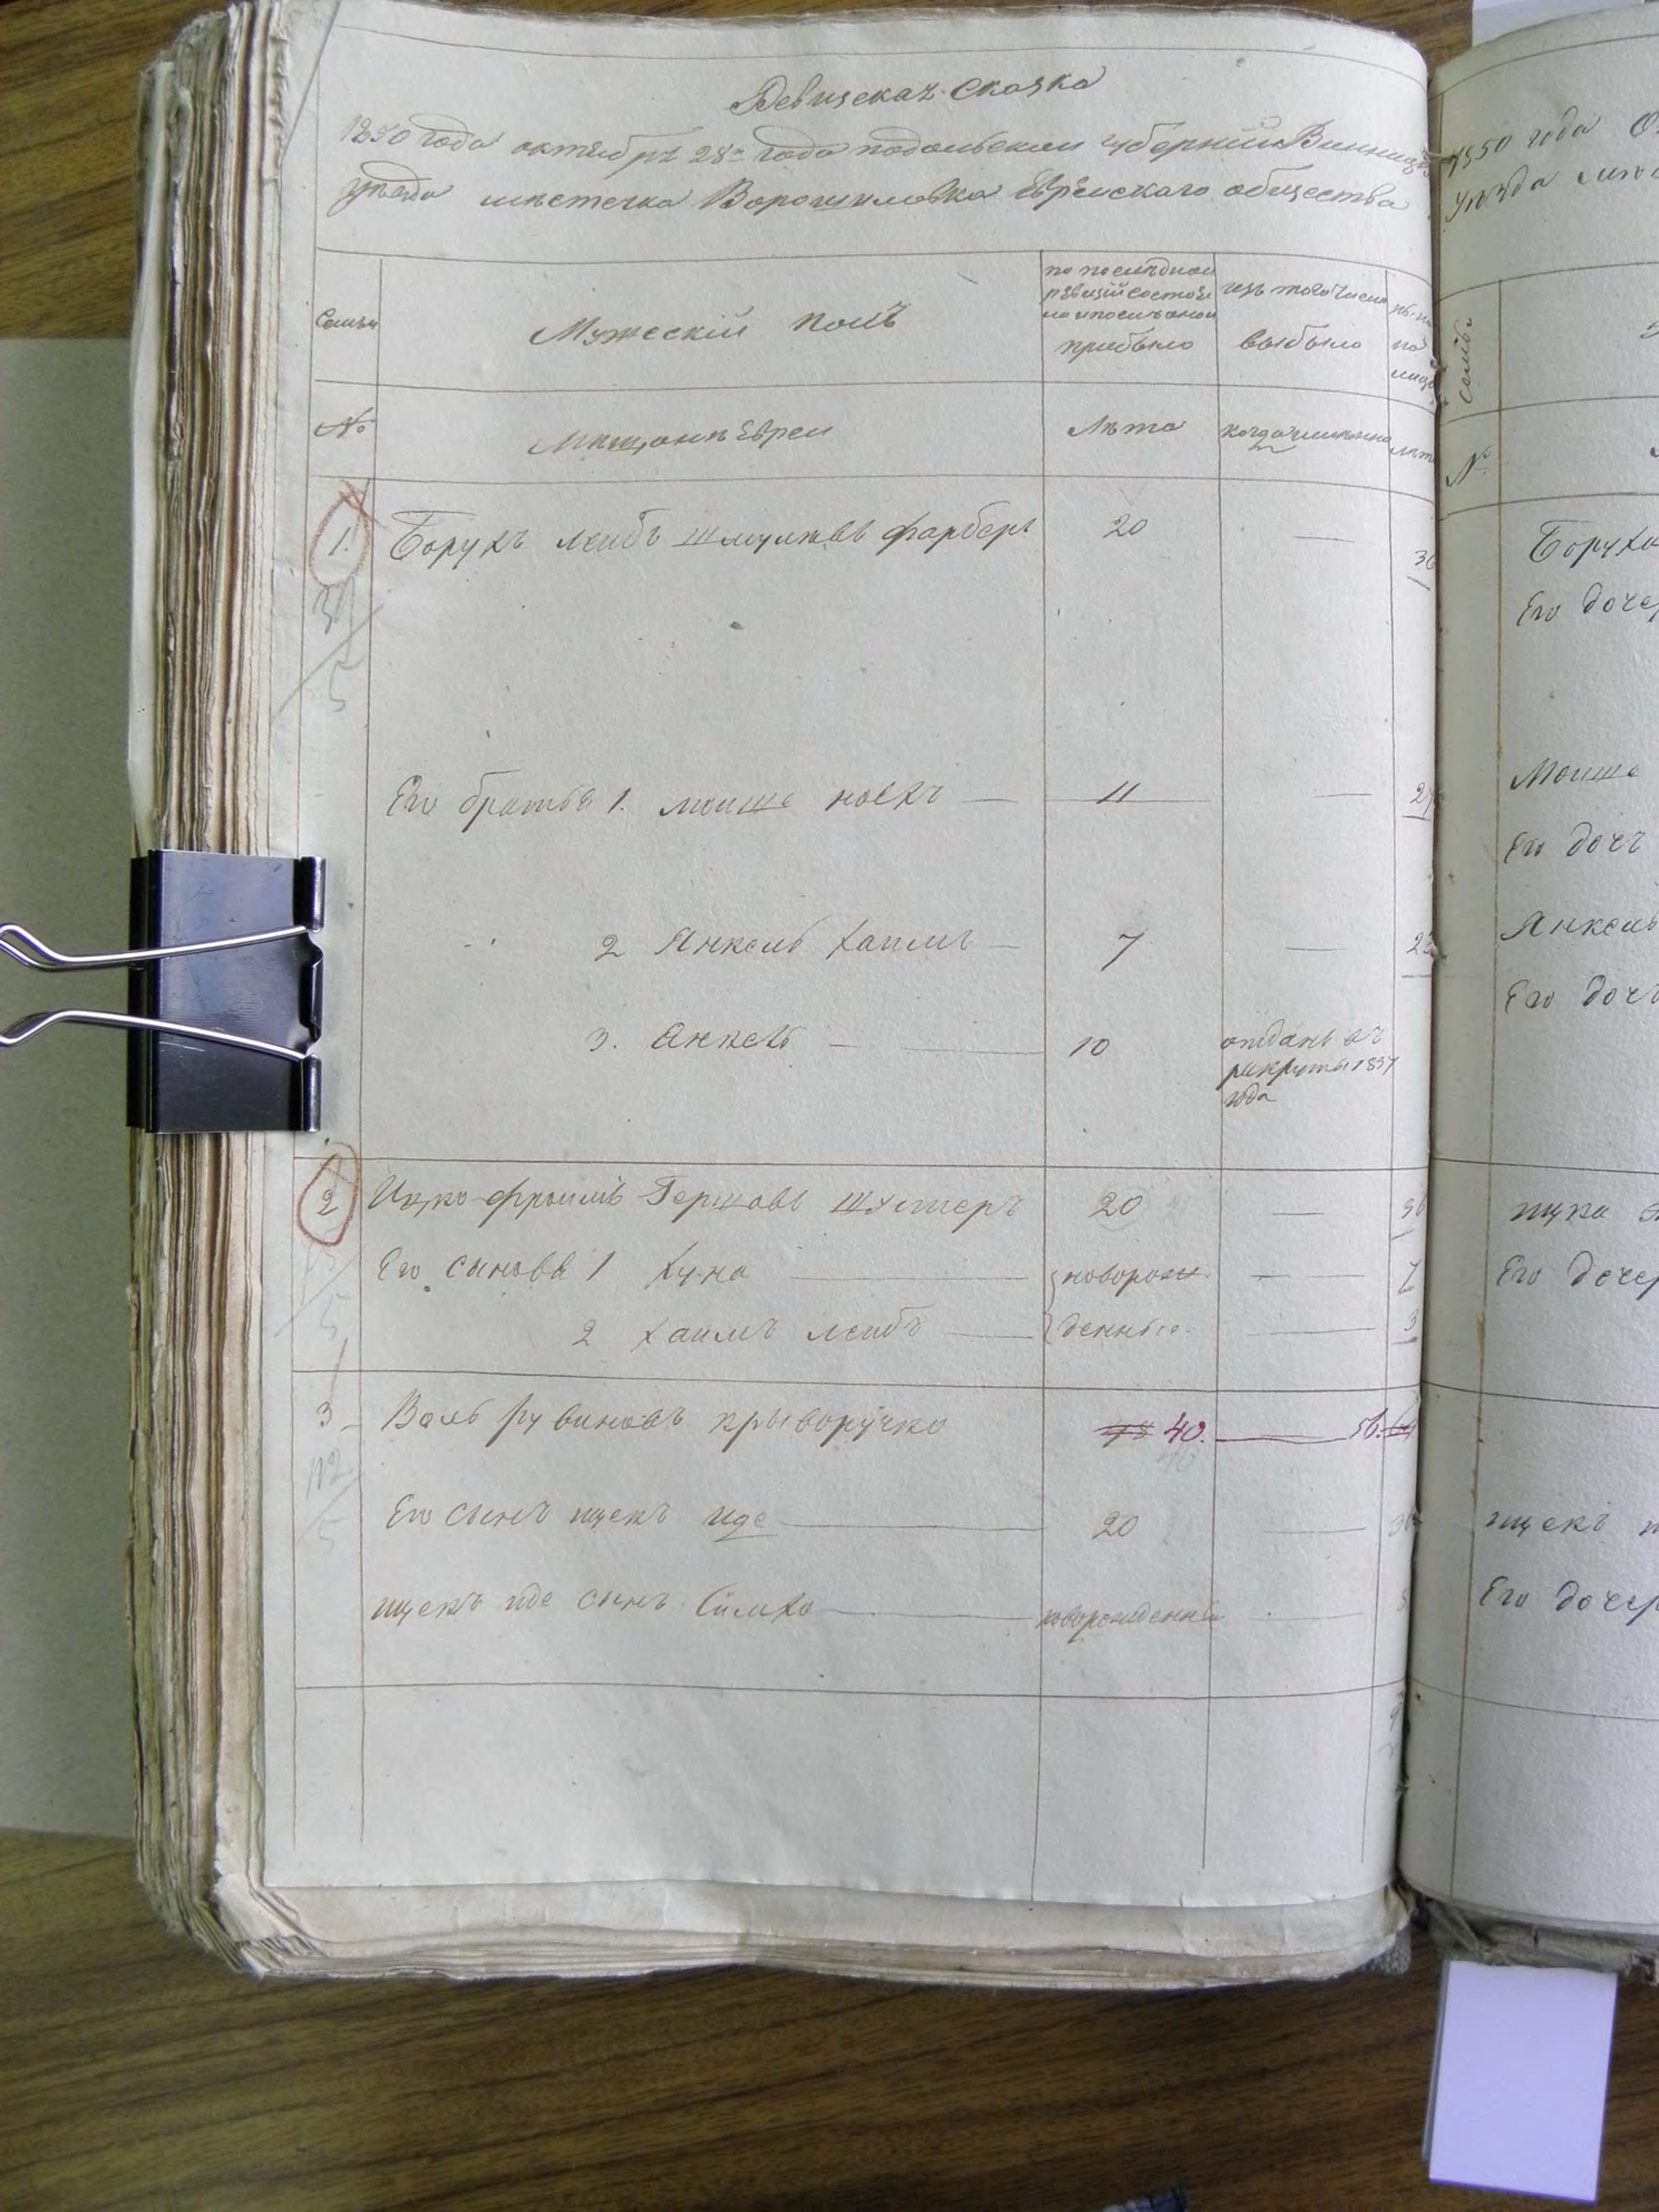 Ревизская Сказка
1850 года октября 28го года подольской губернии Винниц
уезда местечка Ворошиловка Еврейскаго общества
Семьи
Мужескій полъ
по последней
ревизіи состояло
прибыло
изъ того числа
выбыло
на
лицо
№
Мещане Евреи
Лета
когда именно
лет
1.
Борухъ леибъ Шмулевъ фарберъ
20
—
36
Его братья 1. мошие
—
11
—
27
2 Янкель хаимъ —
7
—
23
3. Янкель —
10
отданъ въ
рекруты 1837
года
2
Ицко-фроимъ Гершовъ Шустеръ
20
—
36
Его сыновя 1 хуна
новорож
— —
7
2 хаимъ леибъ
денные
3
3
Воль рувиновъ крыворучко
40.
56.
12
5
Его сынъ ицекъ иде
20
36
ицекъ иде сынъ Симха
новорожденный
1850 года
уезда
семьи
№
Борухъ
Его дочер
Моише
Его дочъ
Янкель
Его дочъ
ицка
Его дочер
ицекъ
Его дочер